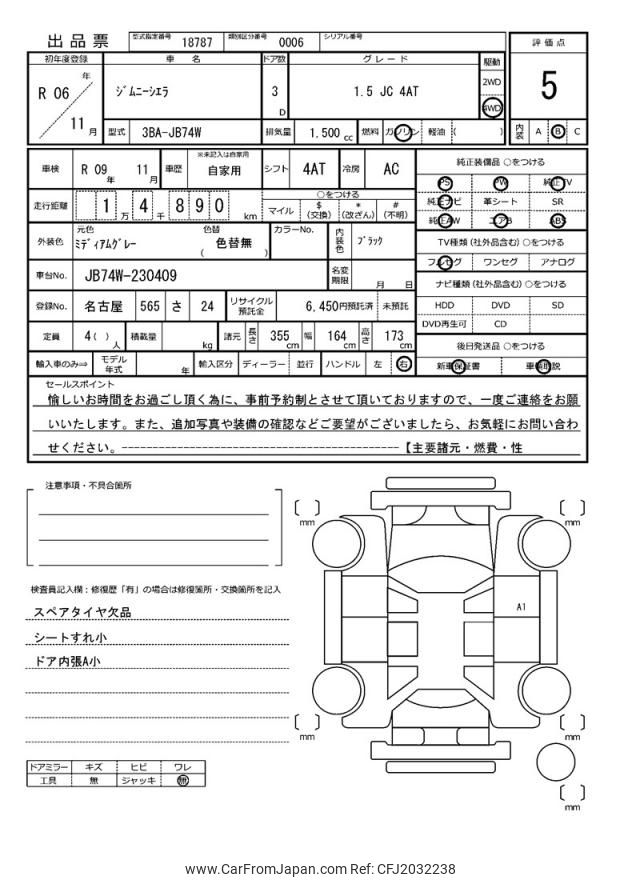 出品票 型式指定番号 18787 類別区分番号 0006 シリアル番号
評価点
5
内装 A B C
初年度登録 車名 ドア数 グレード 駆動
R 06 年 11 月 ジムニーシエラ 3 D 1.5 JC 4AT 2WD
4WD
型式 3BA-JB74W 排気量 1.500 cc 燃料 ガソリン 軽油 ( )
車検 R 09 年 11 月 車歴 ※未記入は自家用 自家用 シフト 4AT 冷房 AC
走行距離 1 万 4 千 8 9 0 km ○をつける
マイル $ (交換) * (改ざん) # (不明)
外装色 元色 ミディアムグレー 色替 ( 色替無 ) カラーNo. 内装色 ブラック
車台No. JB74W-230409 名変期限 月 日
登録No. 名古屋 565 さ 24 リサイクル預託金 6,450円預託済 未預託
定員 4 ( ) 人 積載量 kg 諸元 長さ 355 cm 幅 164 cm 高さ 173 cm
輸入車のみ⇒ モデル年式 年 輸入区分 ディーラー 並行 ハンドル 左 右
純正装備品 ○をつける
PS PW 純正TV
純正ナビ 革シート SR
純正AW エアB ABS
TV種類 (社外品含む) ○をつける
フルセグ ワンセグ アナログ
ナビ種類 (社外品含む) ○をつける
HDD DVD SD
DVD再生可 CD
後日発送品 ○をつける
新車保証書 車輌取説
セールスポイント
愉しいお時間をお過ごし頂く為に、事前予約制とさせて頂いておりますので、一度ご連絡をお願
いいたします。また、追加写真や装備の確認などご要望がございましたら、お気軽にお問い合わ
せください。----------------------------------------【主要諸元・燃費・性
注意事項・不具合箇所
検査員記入欄：修復歴「有」の場合は修復箇所・交換箇所を記入
スペアタイヤ欠品
シートすれ小
ドア内張A小
ドアミラー キズ ヒビ ワレ
工具 無 ジャッキ 無
[ ] mm
[ ] mm
A1
[ ] mm
[ ] mm
[ ] mm
www.CarFromJapan.com Ref: CFJ2032238